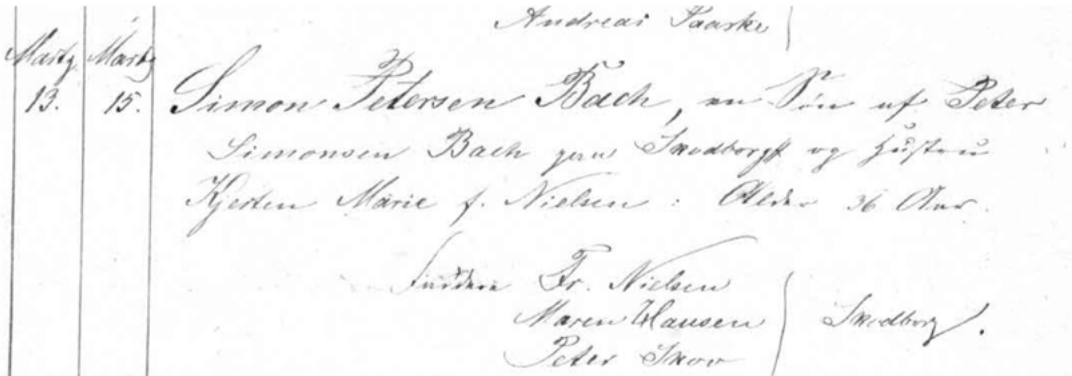 Andreas Paaske
Martz Martz
13. 15. Simon Petersen Bach, en Søn af Peter
Simonsen Bach paa Skodborgh og Hustru
Kjesten Marie f. Nielsen : Alder 36 Aar.
Faddere Fr. Nielsen
Maren Hansen Skodborg.
Peter Skov